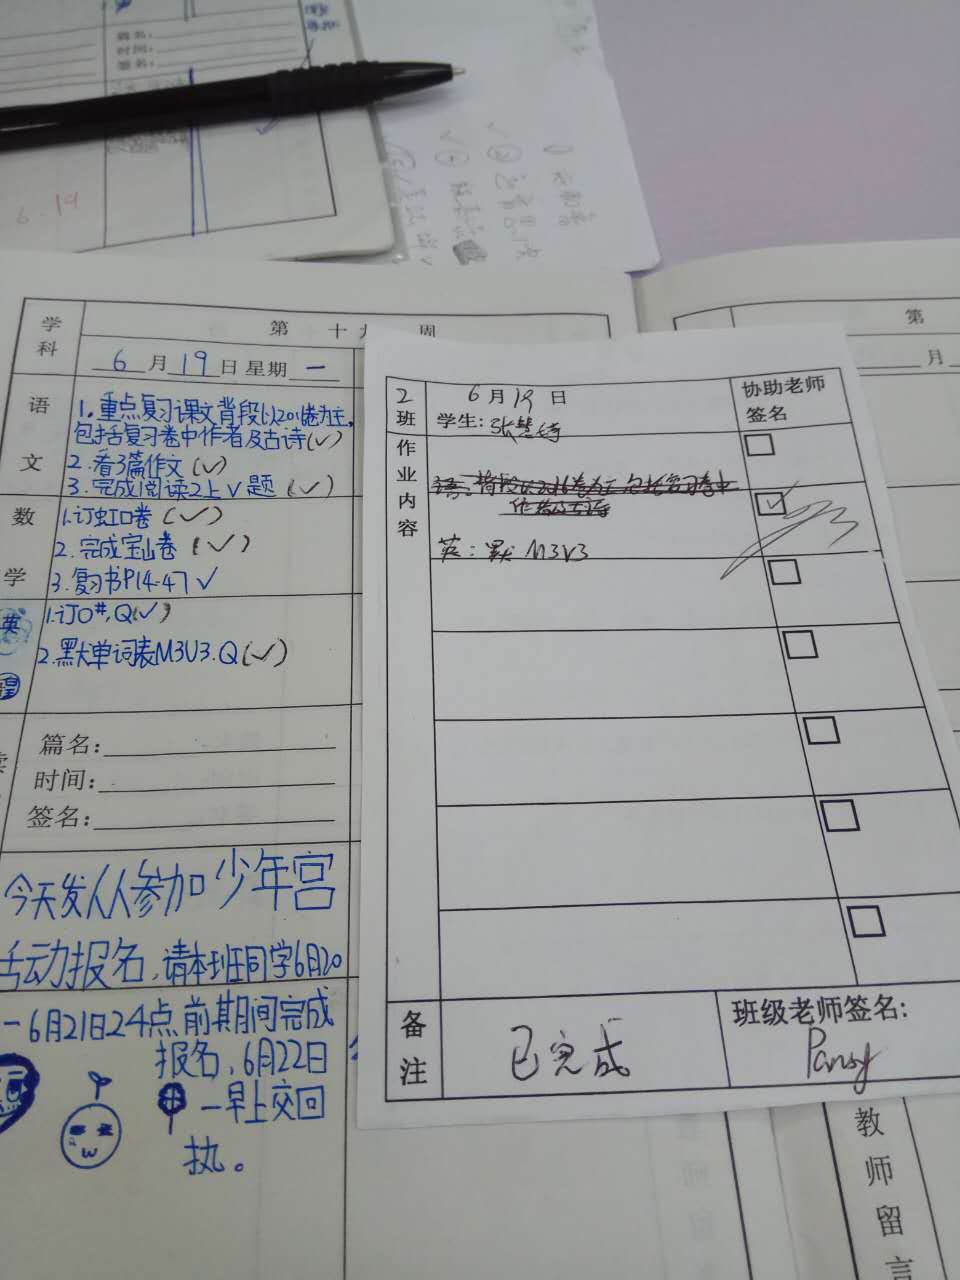 篇名:
时间:
签名:
6.19
学科
第十九周
6月19日星期一
语文
1.重点复习课文背段以2016卷为主,
包括复习卷中作者及古诗(✓)
2.看3篇作文(✓)
3.完成阅读2上V题(✓)
数学
1.订虹口卷(✓)
2.完成宝山卷(✓)
3.复习书P14-47✓
英
1.订0#,Q(✓)
2.默大单词表M3U3.Q(✓)
篇名:
时间:
签名:
今天发人人参加少年宫
活动报名,请本班同学6月20
-6月21日24点前期间完成
报名,6月22日
一早上交回
执。
2班
6月19日
学生:张慧诗
协助老师
签名
作业内容
英:默M3U3
备注
已完成
班级老师签名:
Pansy
第
月
教师留言